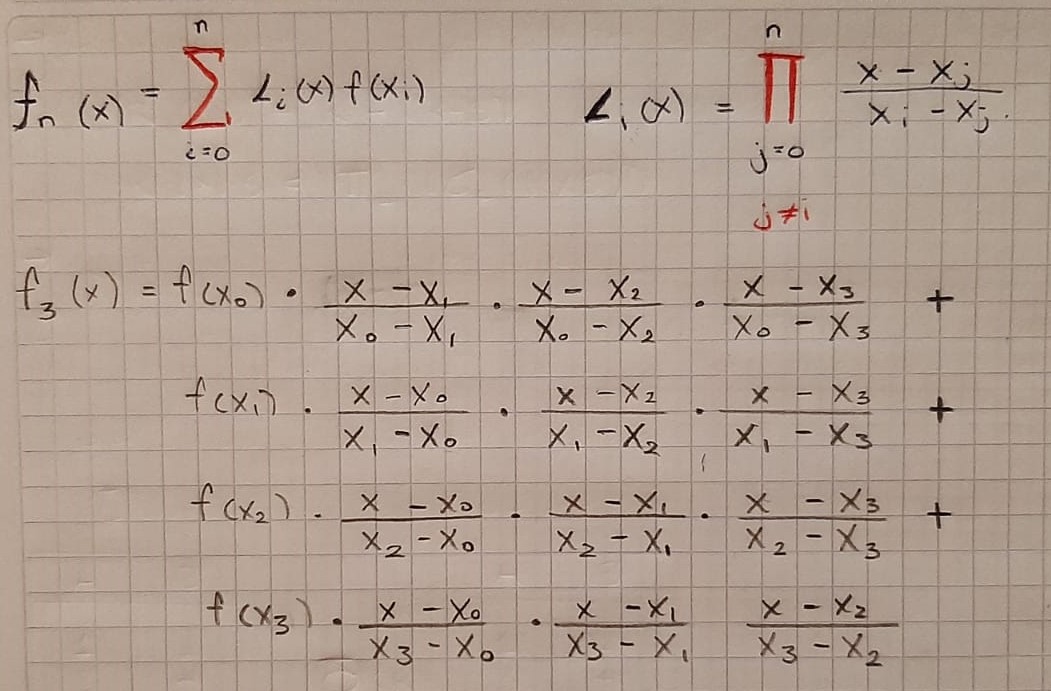 fₙ(x) = ∑ᵢ₌₀ⁿ Lᵢ(x) f(xᵢ)    Lᵢ(x) = ∏ⱼ₌₀, ⱼ≠ᵢⁿ (x - xⱼ)/(xᵢ - xⱼ).
f₃(x) = f(x₀) · (x - x₁)/(x₀ - x₁) · (x - x₂)/(x₀ - x₂) · (x - x₃)/(x₀ - x₃) +
f(x₁) · (x - x₀)/(x₁ - x₀) · (x - x₂)/(x₁ - x₂) · (x - x₃)/(x₁ - x₃) +
f(x₂) · (x - x₀)/(x₂ - x₀) · (x - x₁)/(x₂ - x₁) · (x - x₃)/(x₂ - x₃) +
f(x₃) · (x - x₀)/(x₃ - x₀) · (x - x₁)/(x₃ - x₁) (x - x₂)/(x₃ - x₂)